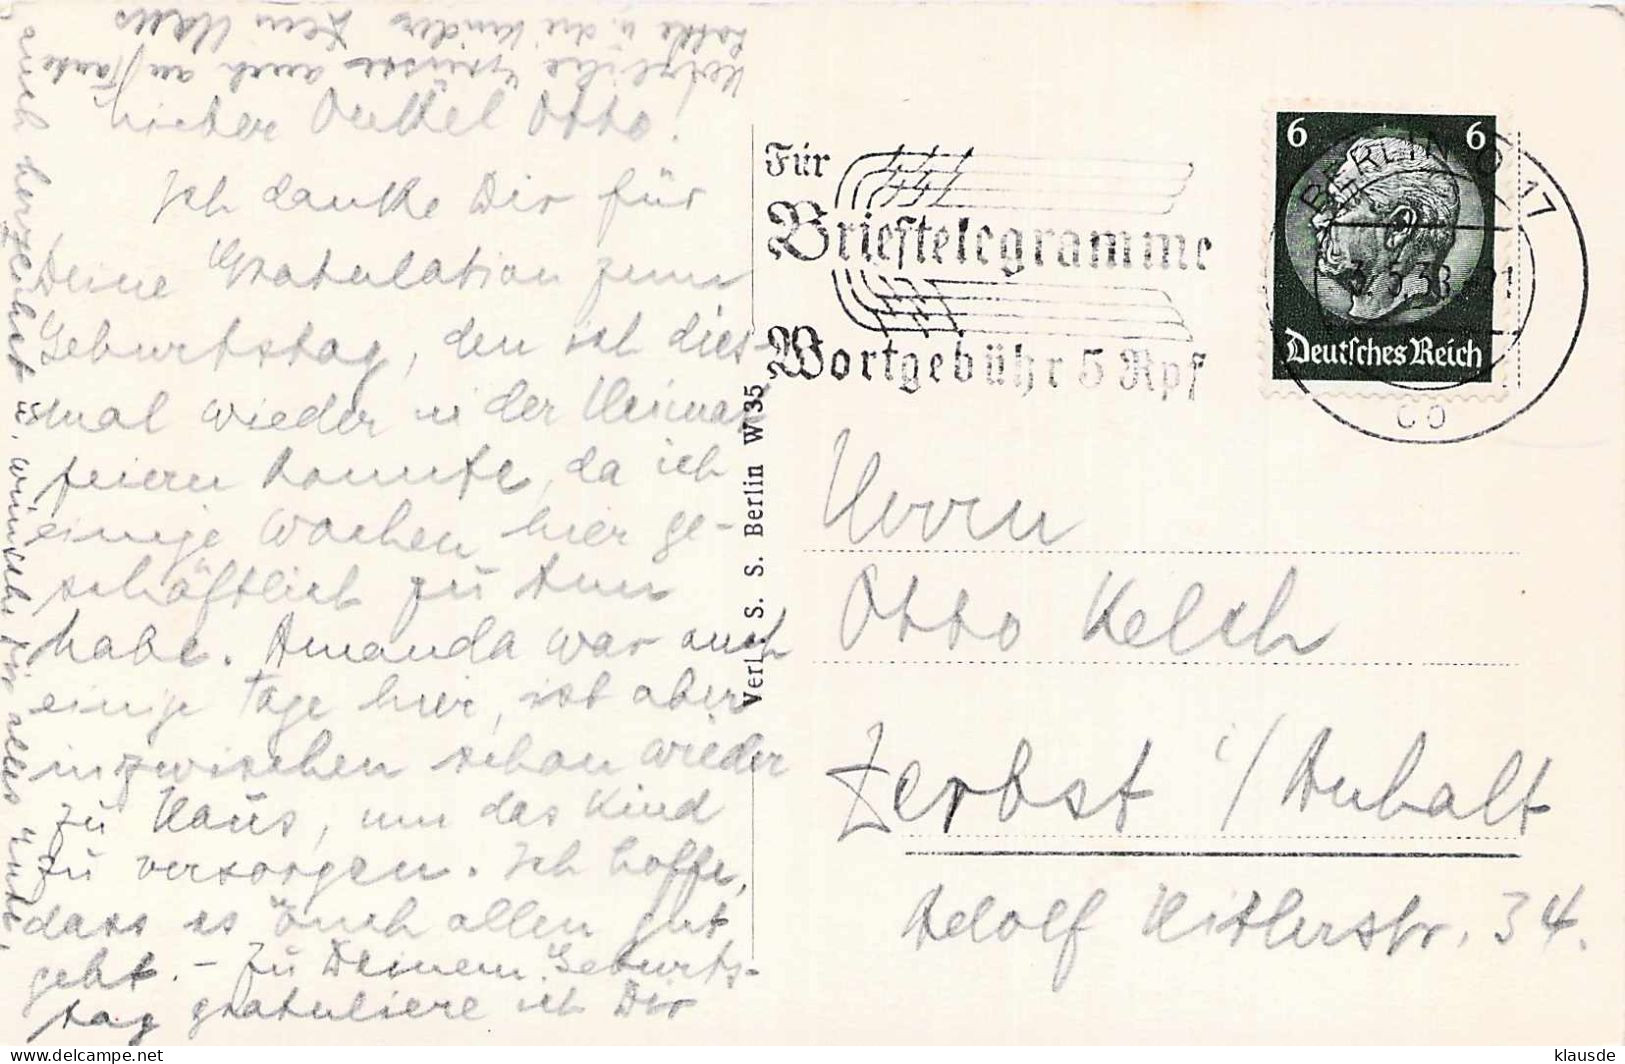 Lieber Onkel Otto!
Ich danke Dir für
Deine Gratulation zum
Geburtstag, den ich dies-
mal wieder in der Heimat
feiern konnte, da ich
einige Wochen hier ge-
schäftlich zu tun
habe. Amanda war auch
einige Tage hier, ist aber
inzwischen schon wieder
zu Haus, um das Kind
zu versorgen. Ich hoffe,
dass es Euch allen gut
geht. – Zu Deinem Geburts-
tag gratuliere ich Dir
auch herzlichst u. wünsche Dir alles Gute.
Herzliche Grüsse auch an Tante
u. die Kinder Dein
Verl. S. S. Berlin W 35
Für
Brieftelegramme
Wortgebühr 5 Rpf
6 6
Deutsches Reich
BERLIN O 17
3.5.38
Herrn
Otto Kelch
Zerbst i/Anhalt
Adolf Hitlerstr. 34.
klausde